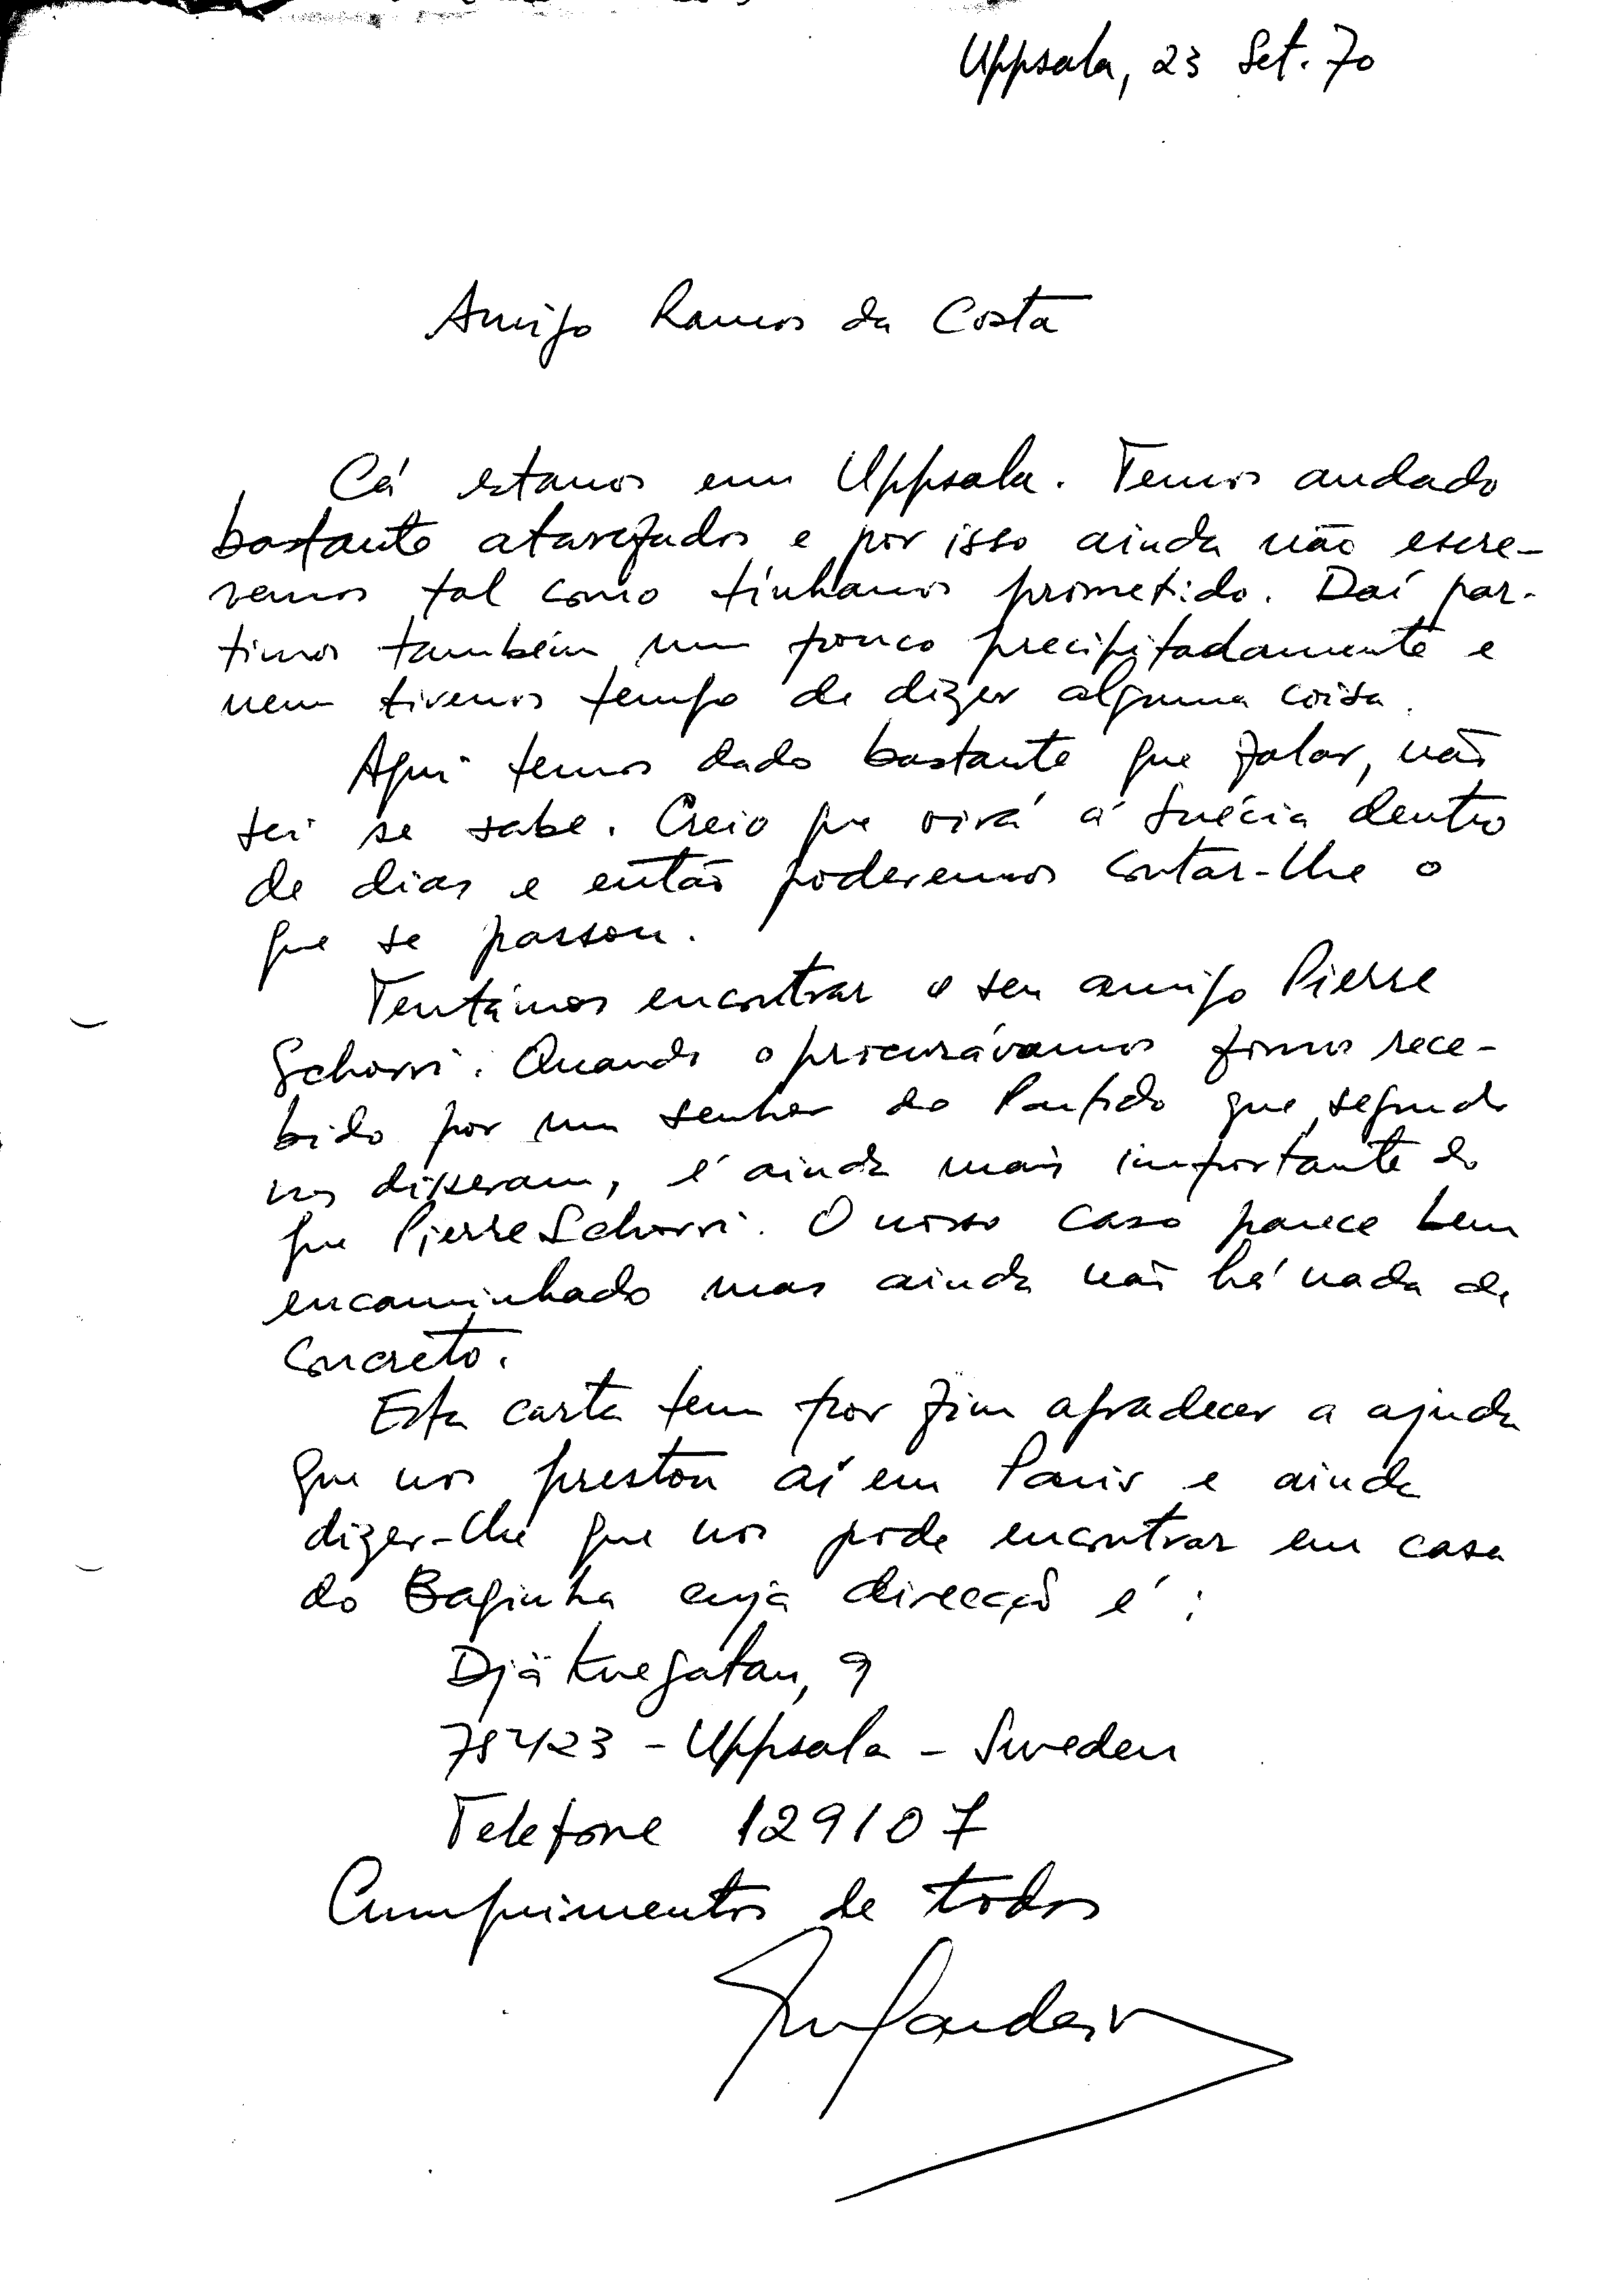 Uppsala, 23 Set. 70
Amigo Ramos da Costa
Cá estamos em Uppsala. Temos andado
bastante atarefados e por isso ainda não escre-
vemos tal como tínhamos prometido. Daí par-
timos também um pouco precipitadamente e
nem tivemos tempo de dizer alguma coisa.
Aqui temos dado bastante que falar, não
sei se sabe. Creio que virá á Suécia dentro
de dias e então poderemos contar-lhe o
que se passou.
Tentámos encontrar o seu amigo Pierre
Schorri. Quando o procurávamos fomos rece-
bido por um senhor do Partido que, segundo
nos disseram, é ainda mais importante do
que Pierre Schorri. O nosso caso parece bem
encaminhado mas ainda não há nada de
concreto.
Esta carta tem por fim agradecer a ajuda
que nos prestou aí em Paris e ainda
dizer-lhe que nos pode encontrar em casa
do Baginha cuja direcção é:
Djäknegatan, 9
75423 - Uppsala - Sweden
Telefone 129107
Cumprimentos de todos